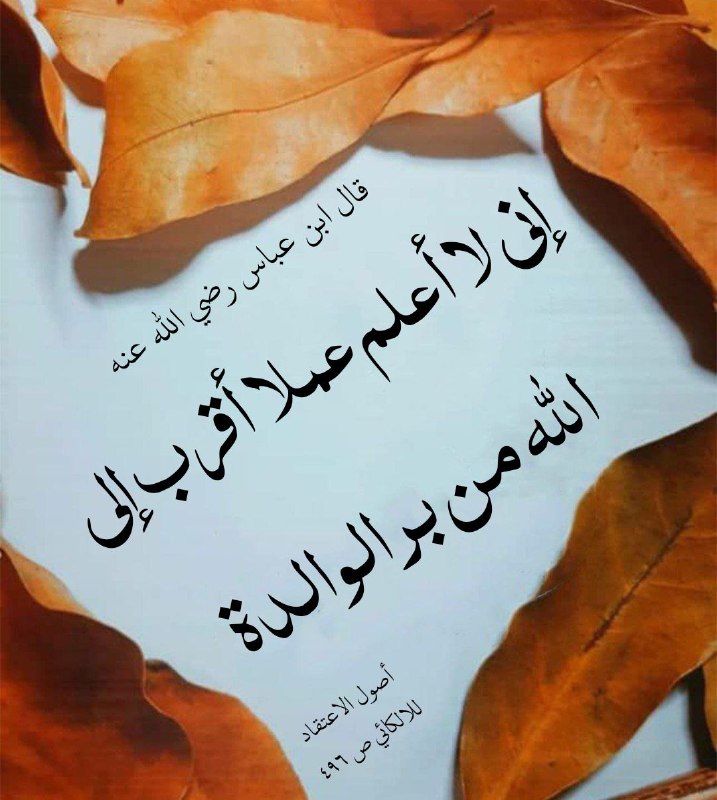 قال ابن عباس رضي الله عنه
إنى لا أعلم عملا أقرب إلى
الله من بر الوالدة
أصول الاعتقاد
للالكائي ص ٤٩٦